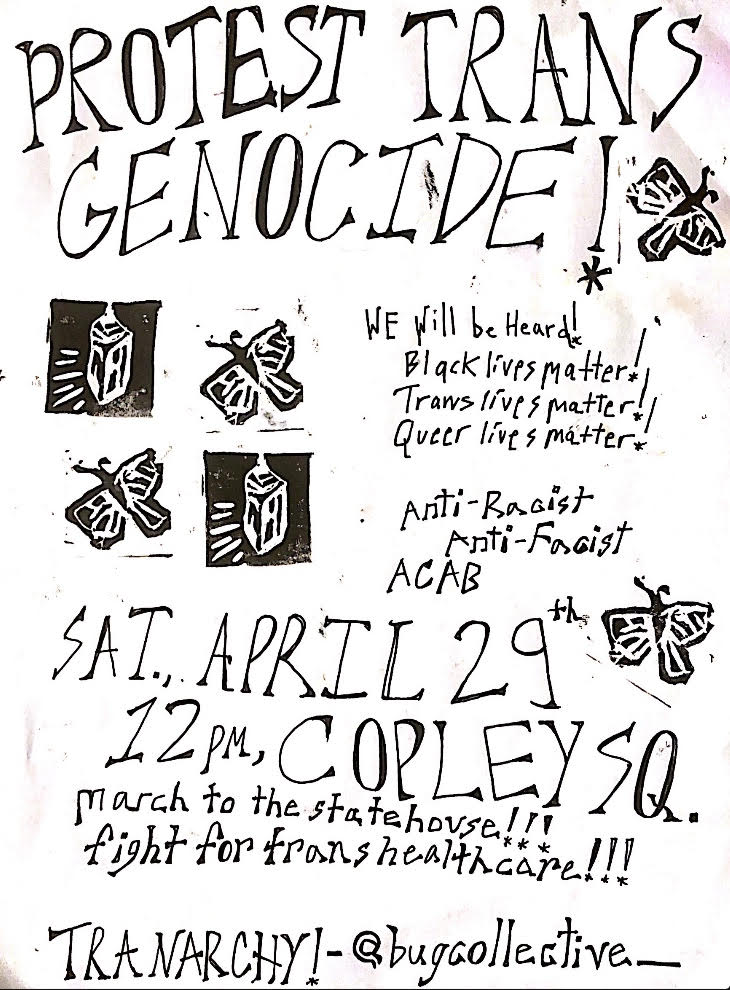 PROTEST TRANS
GENOCIDE!
WE Will be Heard!
Black lives matter!
Trans lives matter!
Queer lives matter!
Anti-Racist
Anti-Facist
ACAB
SAT., APRIL 29th
12PM, COPLEY SQ.
march to the statehouse!!!
fight for trans healthcare!!!
TRANARCHY!-@bugcollective_